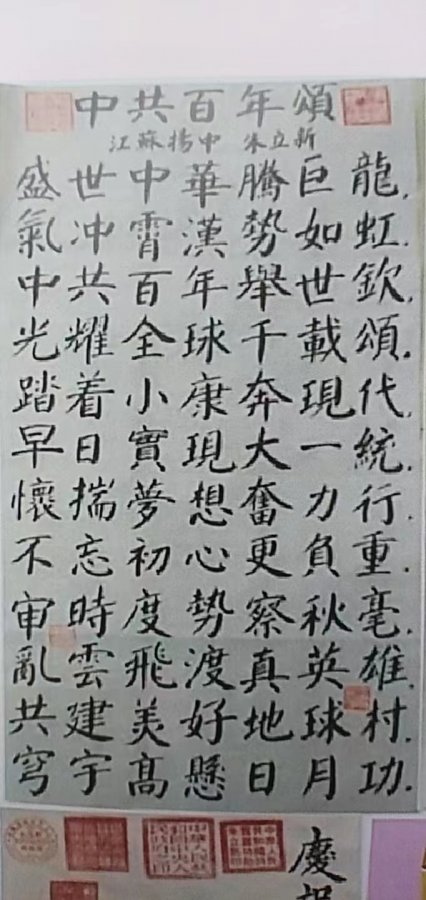 中共百年頌
江蘇揚中 朱立新
盛世中華騰巨龍.
氣冲霄漢勢如虹.
中共百年舉世欽.
光耀全球千載頌.
踏着小康奔現代.
早日實現大一統.
懷揣夢想奮力行.
不忘初心更負重.
审時度勢察秋毫.
亂雲飛渡真英雄.
共建美好地球村.
穹宇高懸日月功.
慶